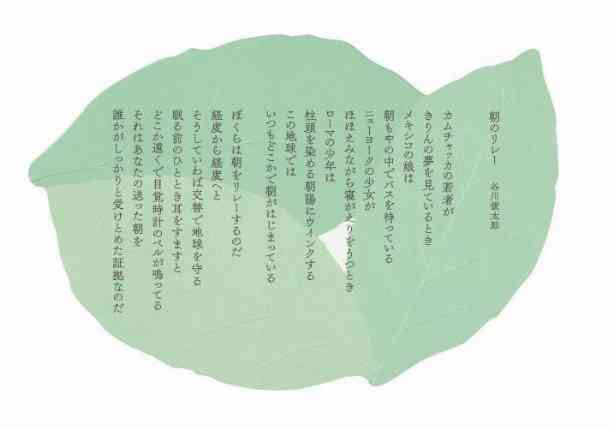 朝のリレー　谷川俊太郎
カムチャッカの若者が
きりんの夢を見ているとき
メキシコの娘は
朝もやの中でバスを待っている
ニューヨークの少女が
ほほえみながら寝がえりをうつとき
ローマの少年は
柱頭を染める朝陽にウインクする
この地球では
いつもどこかで朝がはじまっている
ぼくらは朝をリレーするのだ
経度から経度へと
そうしていわば交替で地球を守る
眠る前のひととき耳をすますと
どこか遠くで目覚時計のベルが鳴ってる
それはあなたの送った朝を
誰かがしっかりと受けとめた証拠なのだ